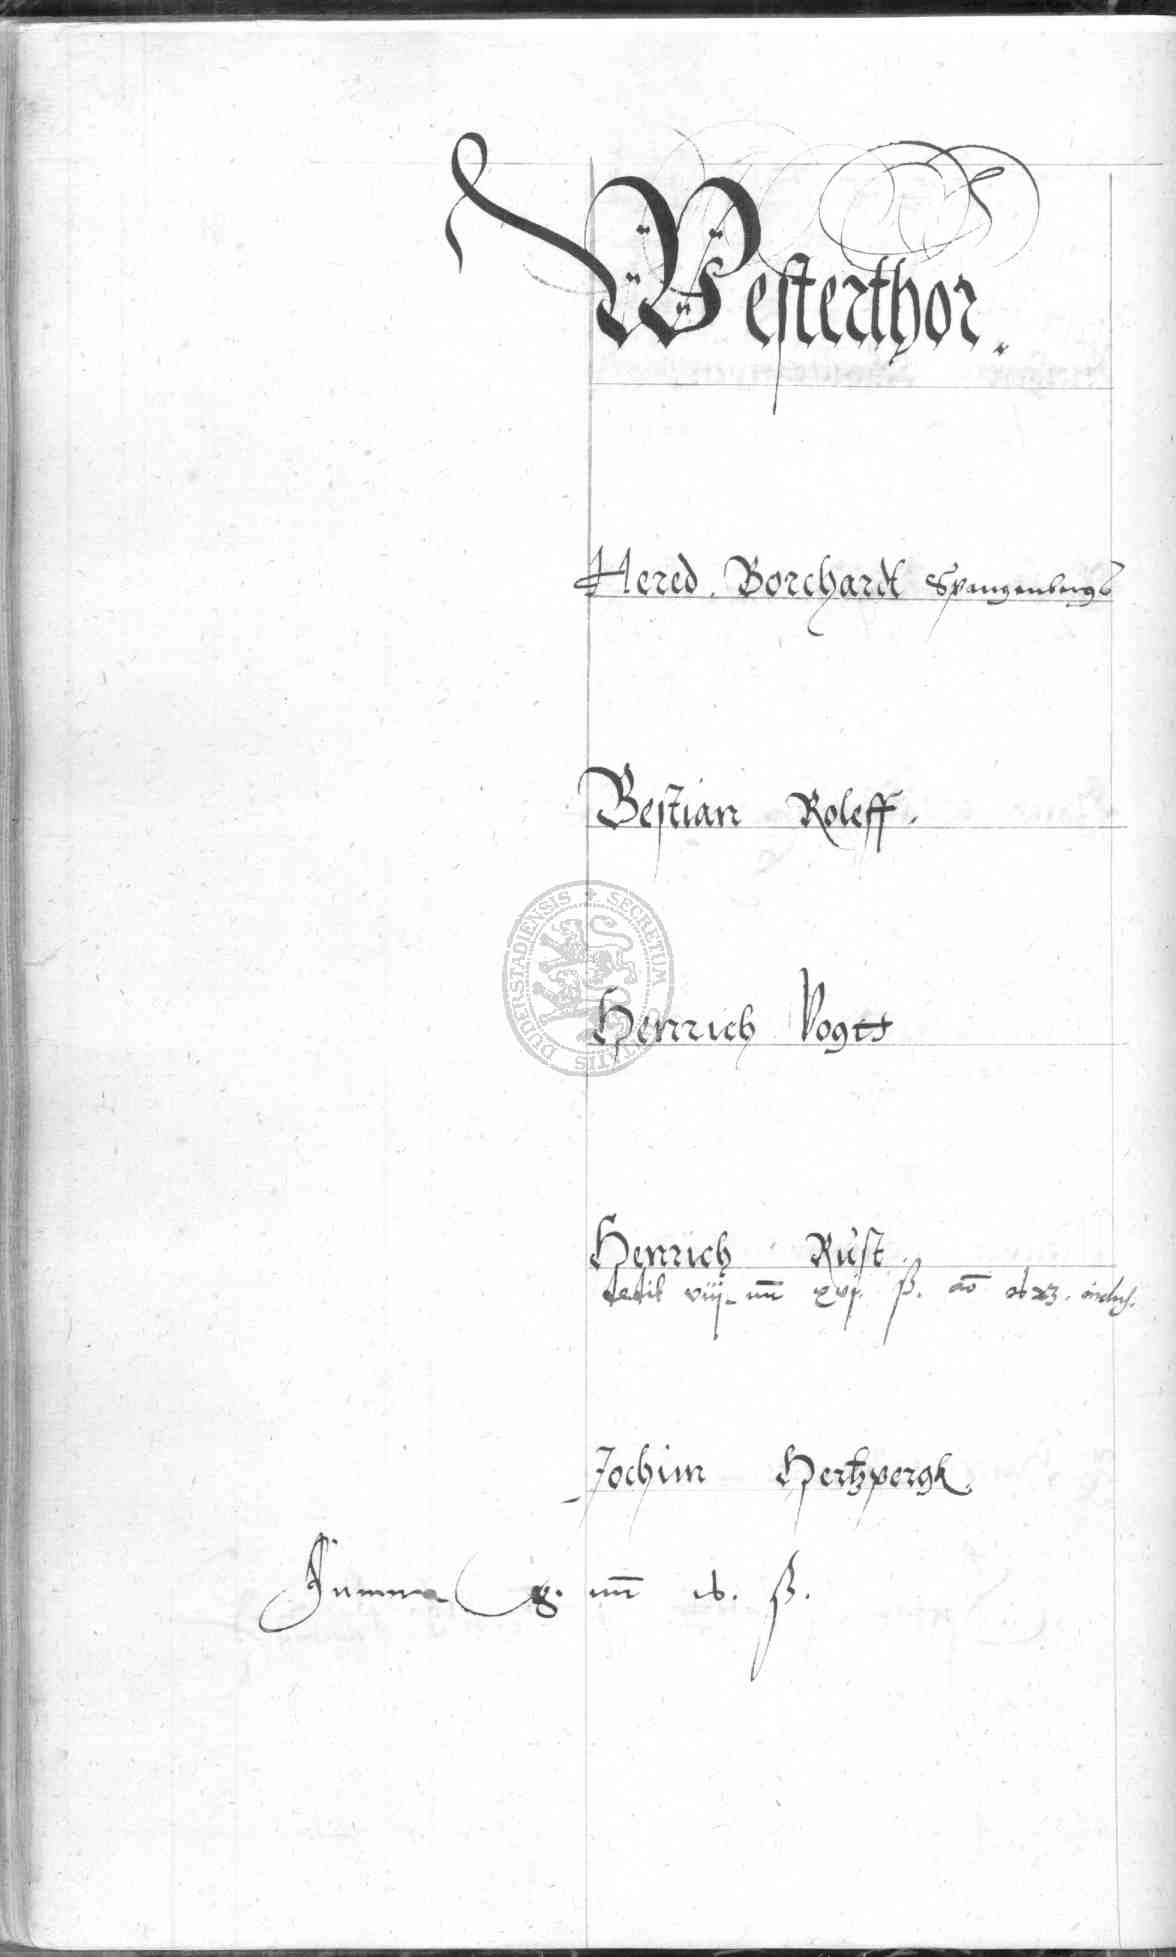 Westerthor.
Hered. Borchardt Spangenbergs
Bestian Roleff.
SECRETUM DUDERSTADIENSIS
Henrich Vogtt
Henrich Rust.
dedit viij mr xvj ß. ao
Jochim Hertzpergk.
Summa mr ß.